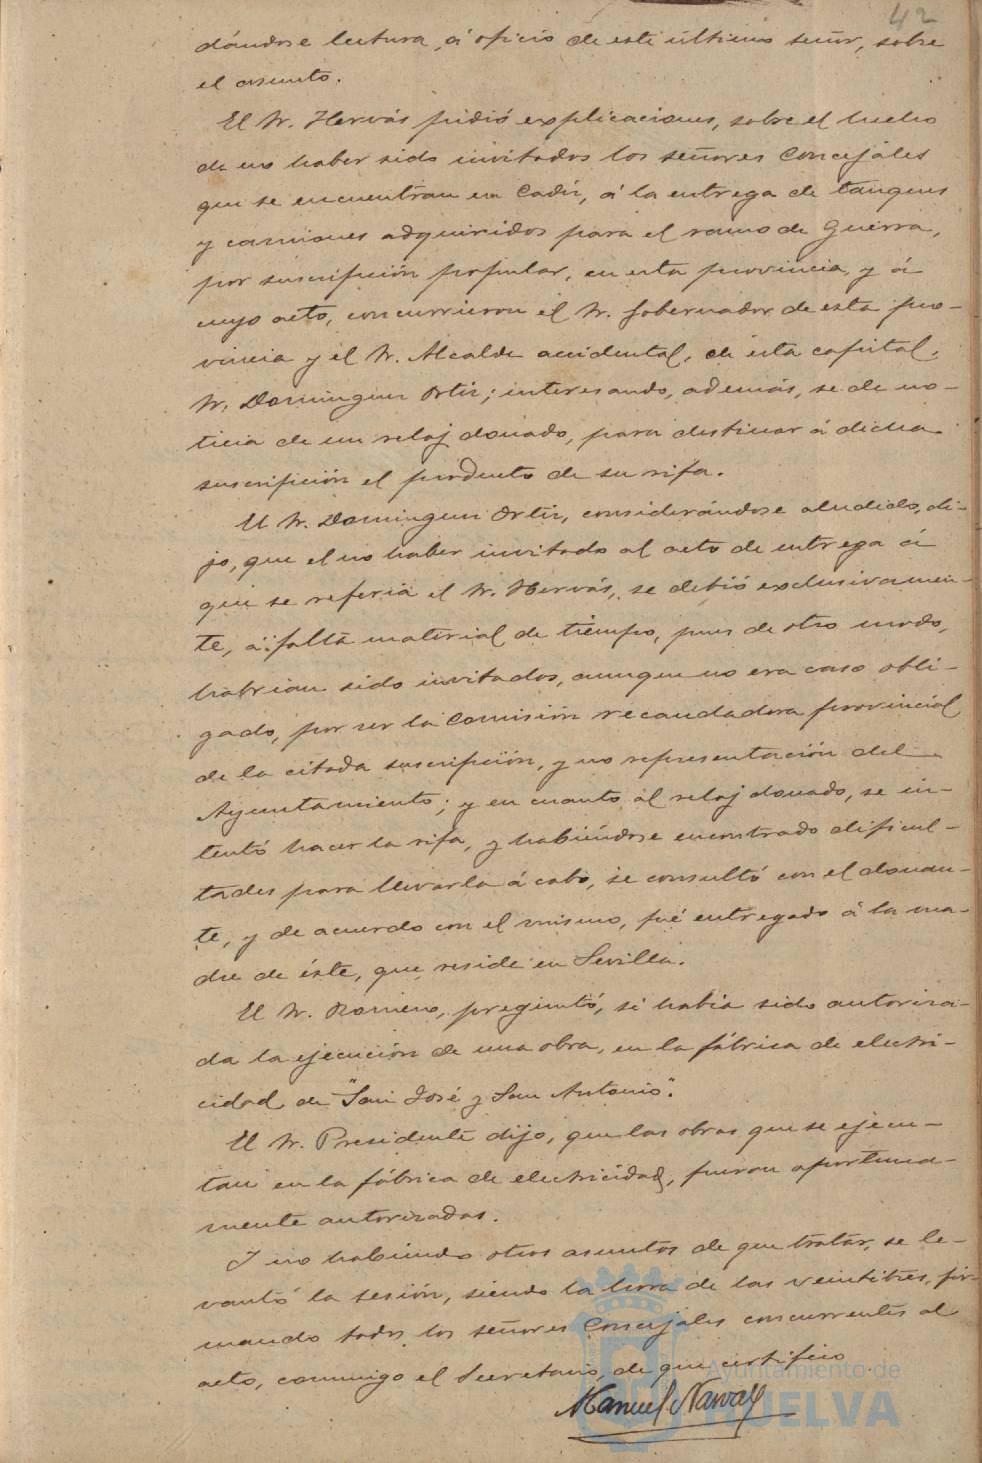 42
dándose lectura, á oficio de este último señor, sobre
el asunto.
El Sr. Hervás pidió explicaciones, sobre el hecho
de no haber sido invitados los señores Concejales
que se encuentran en Cadiz, á la entrega de tanques
y camiones adquiridos para el ramo de Guerra,
por suscripción popular, en esta provincia, y á
cuyo acto, concurrieron el Sr. Gobernador de esta pro-
vincia y el Sr. Alcalde accidental, de esta capital,
Sr. Dominguez Ortiz; interesando, además, se dé no-
ticia de un reloj donado, para destinar á dicha
suscripción el producto de su rifa.
El Sr. Dominguez Ortiz, considerándose aludido, di-
jo, que el no haber invitado al acto de entrega á
que se referia el Sr. Hervás, se debió exclusivamen-
te, á falta material de tiempo, pues de otro modo,
habrian sido invitados, aunque no era caso obli-
gado, por ser la Comisión recaudadora provincial
de la citada suscripción, y no representación del
Ayuntamiento; y en cuanto al reloj donado, se in-
tentó hacer la rifa, y habiéndose encontrado dificul-
tades para llevarla á cabo, se consultó con el donan-
te, y de acuerdo con el mismo, fué entregado á la ma-
dre de éste, que reside en Sevilla.
El Sr. Romero, preguntó, si había sido autoriza-
da la ejecución de una obra, en la fábrica de electri-
cidad de "San José y San Antonio".
El Sr. Presidente dijo, que las obras que se ejecu-
tan en la fábrica de electricidad, fueron oportuna-
mente autorizadas.
Y no habiendo otros asuntos de que tratar, se le-
vantó la sesión, siendo la hora de las veintitres, fir-
mando todos los señores Concejales concurrentes al
acto, conmigo el Secretario, de que certifico.
Ayuntamiento de
HUELVA
Manuel Navas